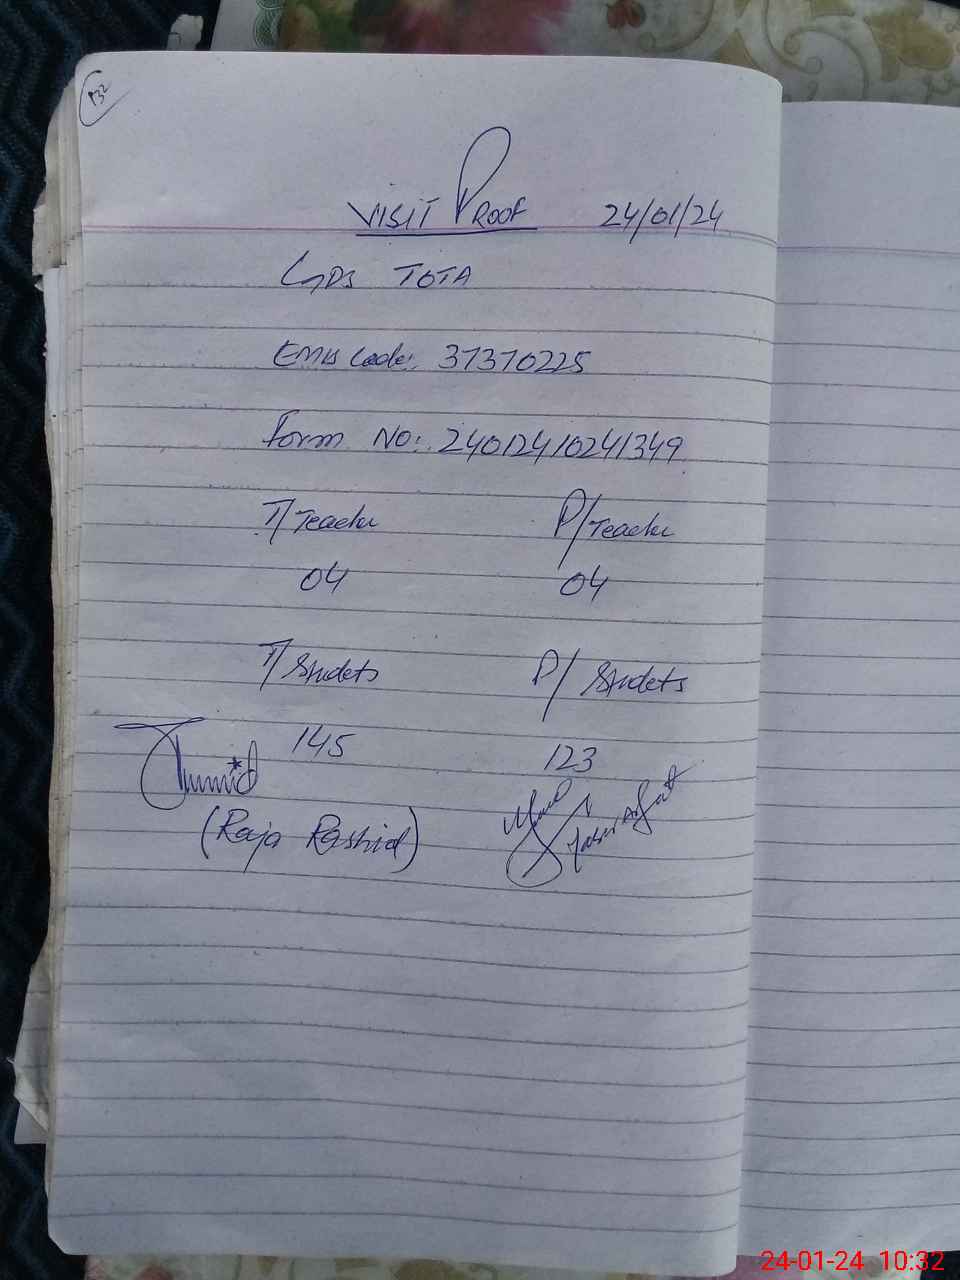 132
VISIT PROOF 24/01/24
GPS TOTA
EMIS Code: 37370225
Form NO: 24012410241349
T/Teacher P/Teacher
04 04
T/Studets P/Studets
145 123
(Raja Rashid) Yasir Arfat
24-01-24 10:32